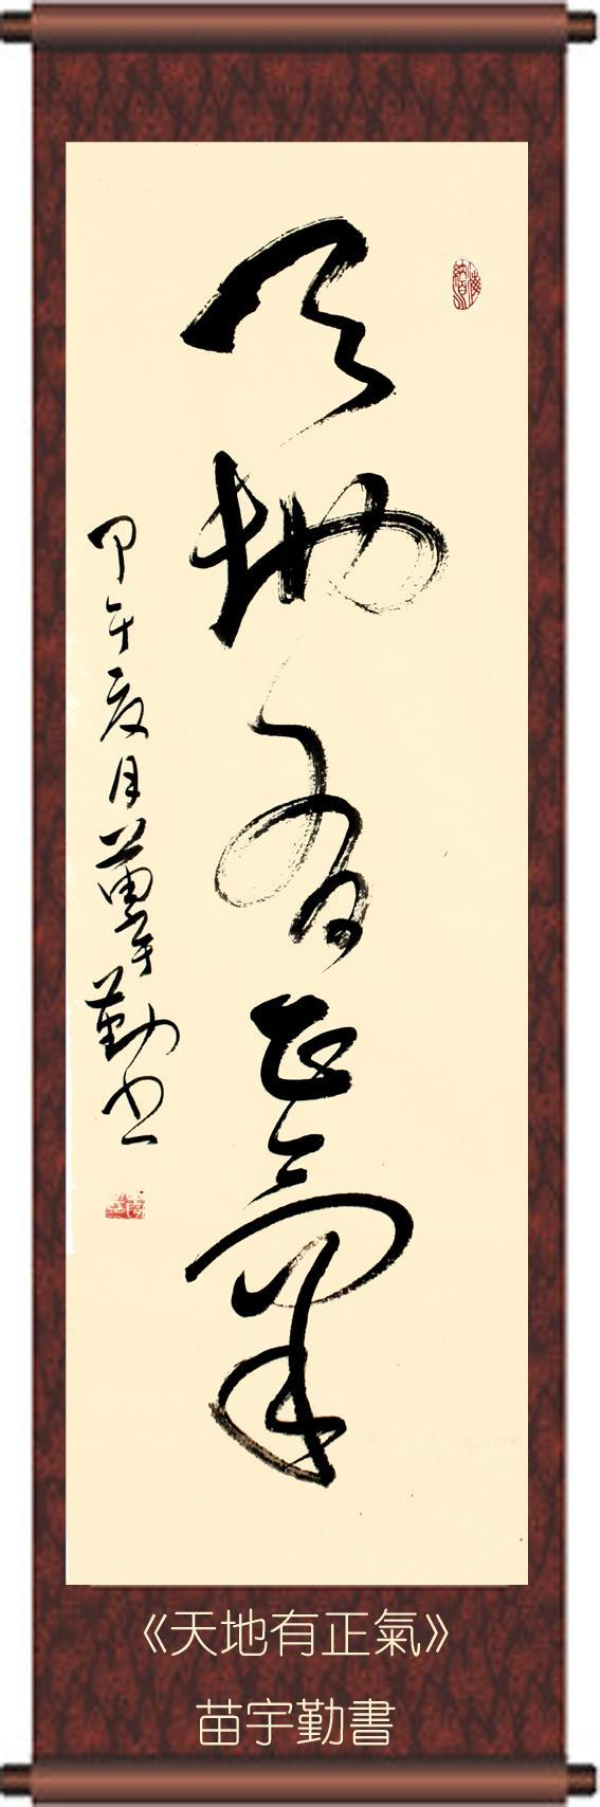 天地有正氣
甲午夏月苗宇勤書
《天地有正氣》
苗宇勤書